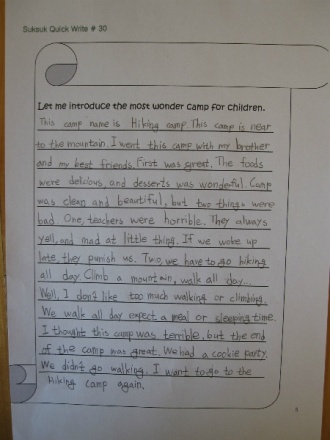 Suksuk Quick Write # 30
Let me introduce the most wonder camp for children.
This camp name is Hiking camp. This camp is near
to the mountain. I went this camp with my brother
and my best friends. First was great. The foods
were delcious, and desserts was wonderful. Camp
was clean and beautiful, but two things were
bad. One, teachers were horrible. They always
yell, and mad at little thing. If we woke up
late, they punish us. Two, we have to go hiking
all day. Climb a mountain, walk all day...
Well, I don't like too much walking or climbing.
We walk all day expect a meal or sleeping time.
I thought this camp was terrible, but the end
of the camp was great. We had a cookie party.
We didn't go walking. I want to go to the
Hiking camp again.